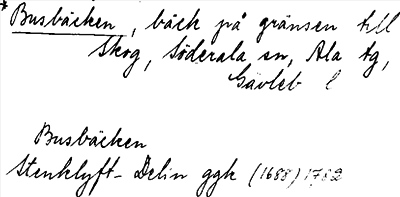 Busbäcken, bäck på gränsen till
Skog, Söderala sn, Ala tg,
Gävleb l
Busbäcken
Stenklyft-Delin ggk (1688) 1782